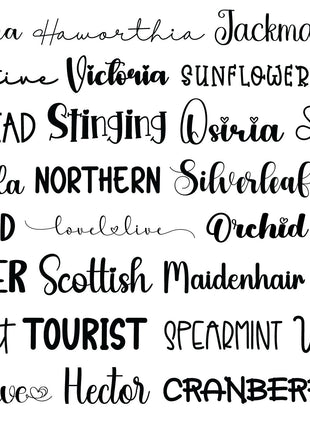 a Haworthia Jackma
tive Victoria SUNFLOWER
EAD Stinging Osiria S
la NORTHERN Silverleaf
D lovelive Orchid
ER Scottish Maidenhair
t TOURIST SPEARMINT V
ve Hector CRANBER